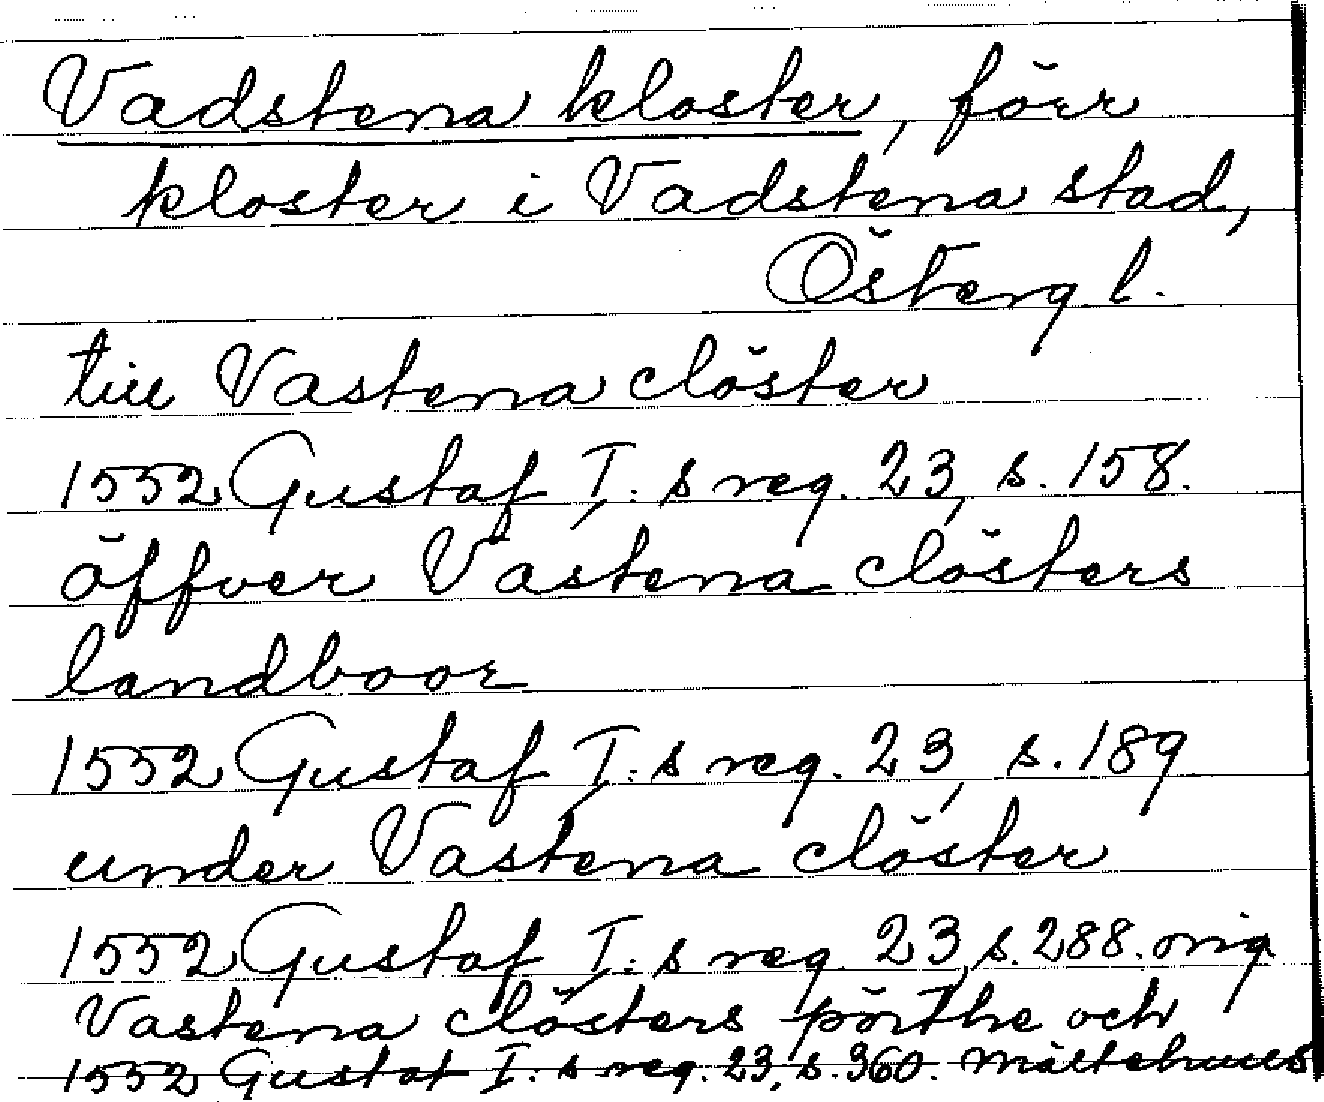 Vadstena kloster, förr
kloster i Vadstena stad,
Österg l.
till Vastena clöster
1552 Gustaf I:s reg. 23, s. 158.
öffver Vastena clösters
landboor
1552 Gustaf I:s reg. 23, s. 189
under Vastena clöster
1552 Gustaf I:s reg. 23, s. 288. orig
Vastena clösters pörthe och
1552 Gustaf I:s reg. 23, s. 360. mältehuus